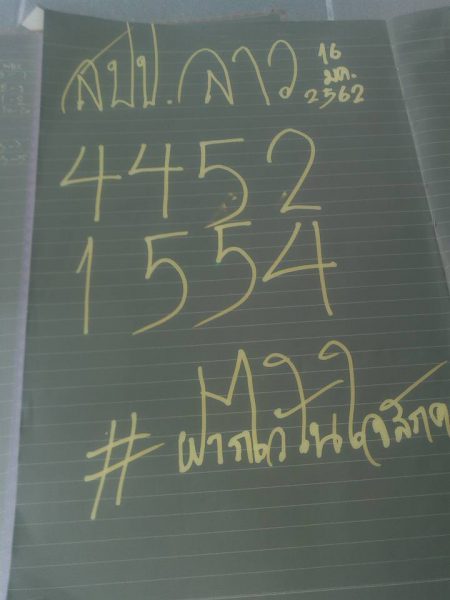 สปป.ลาว
16
มค.
2562
4452
1554
#ฝากไว้ในใจสักค